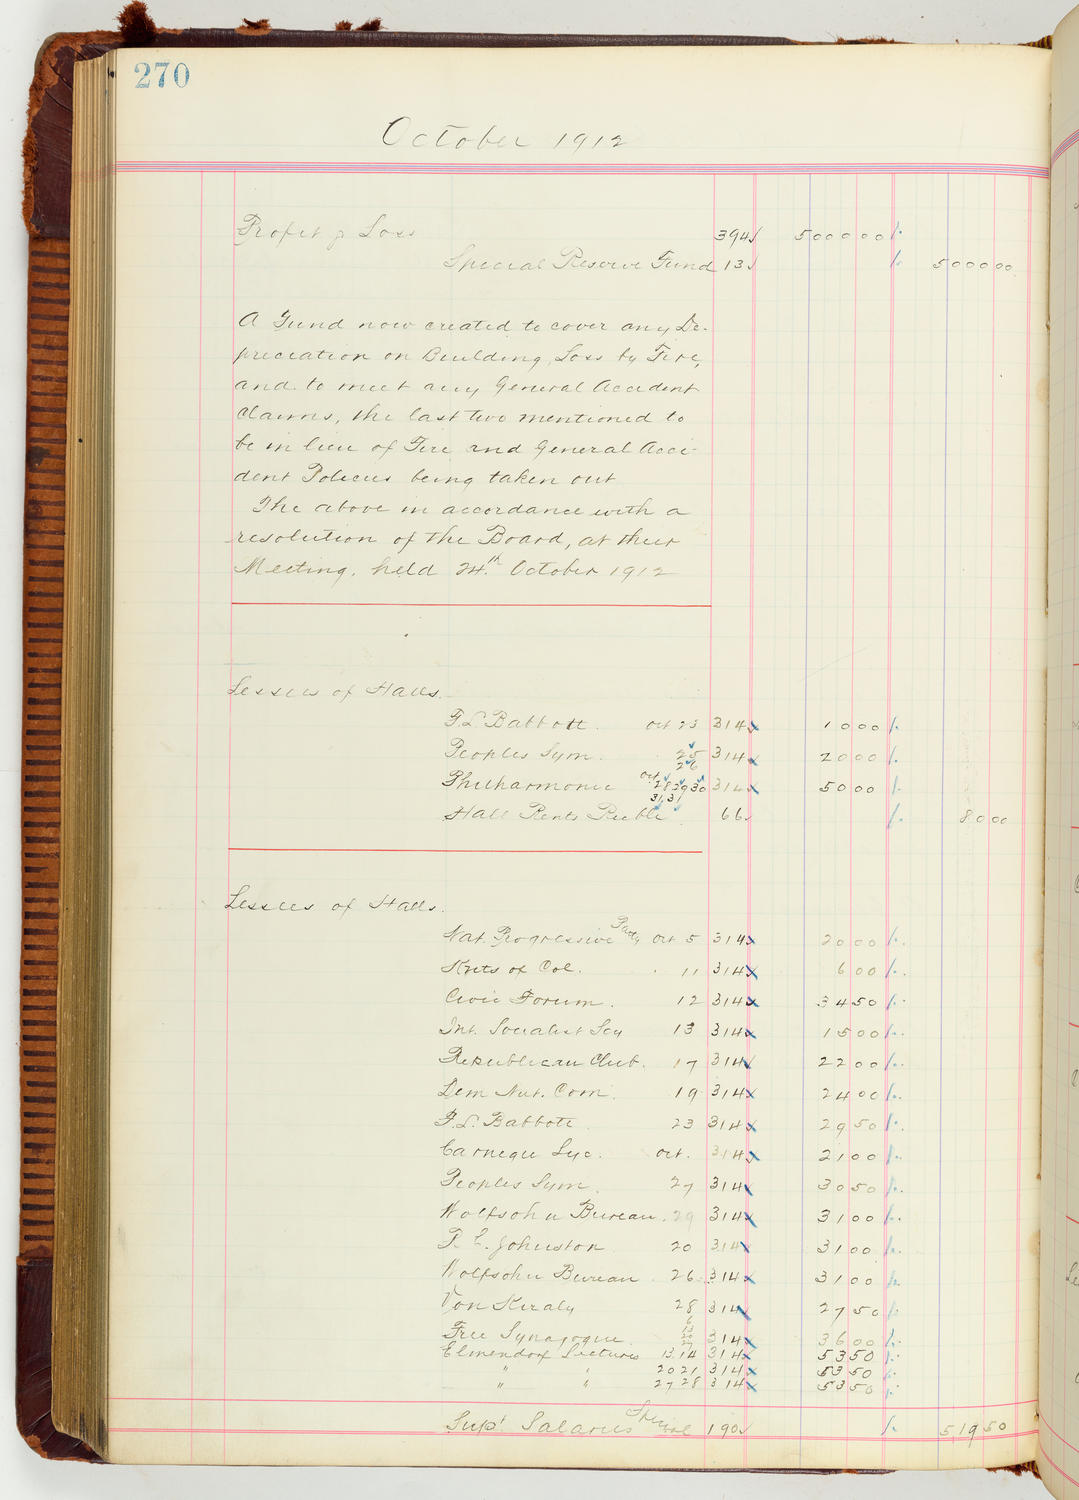 270
October 1912
Profit & Loss 394 500000
Special Reserve Fund 13 500000
A Fund now created to cover any De-
preciation on Building, Loss by Fire,
and to meet any General Accident
claims, the last two mentioned to
be in lieu of Fire and General Acci-
dent Policies being taken out
The above in accordance with a
resolution of the Board, at their
Meeting, held 24th October 1912
Lessees of Halls.
F. L. Babbott. Oct 23 314 1000
Peoples Sym. 25 26 314 2000
Philharmonic Oct 28 29 30 31 31 314 5000
Hall Rents Rec'ble 66 8000
Lessees of Halls.
Nat. Progressive Party Oct 5 314 2000
Knts of Col. " 11 314 600
Civic Forum. 12 314 3450
Int. Socialist Scy 13 314 1500
Republican Club. 17 314 2200
Dem Nat. Com. 19 314 2400
F. L. Babbott 23 314 2950
Carnegie Lyc. Oct. 314 2100
Peoples Sym. 27 314 3050
Wolfsohn Bureau. 29 314 3100
Johnston 20 314 3100
Wolfsohn Bureau 26 314 3100
Von Kiraly 28 314 2750
Free Synagogue. 6 13 20 27 314 3600
Elmendorf Lectures 13 14 314 5350
" " 20 21 314 5350
" " 27 28 314 5350
Sup' Salaries Special 190 51950